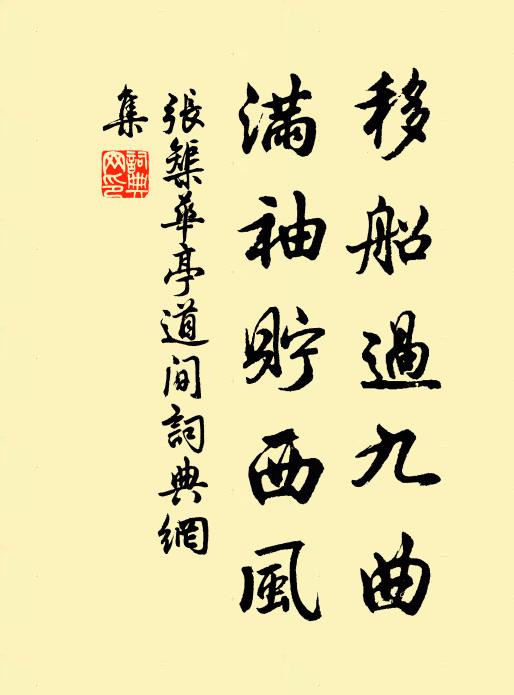 移船過九曲
滿袖貯西風
張榘華亭道间詞典網
集
詞典
网印